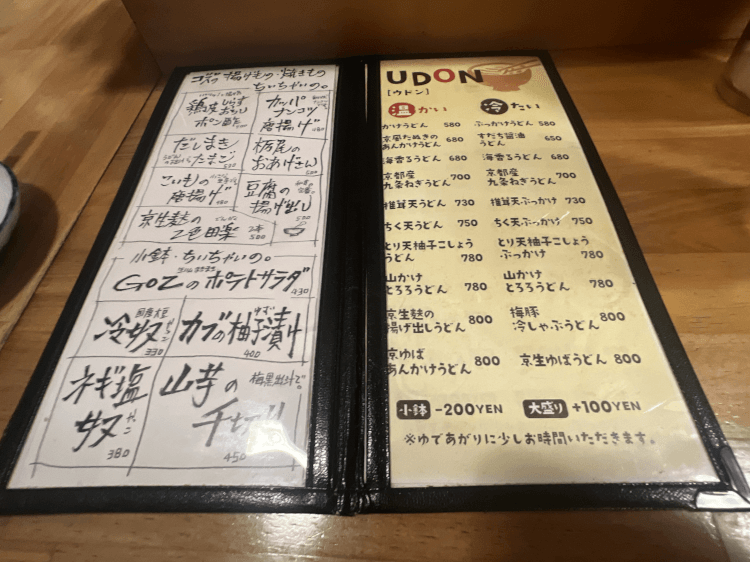 揚げもの・焼きもの
ちいちゃいの。
しらす
おろし
ポン酢
カッパ
ナンコツ
唐揚げ
だしまき
たまご
栃尾の
おあげさん
こいもの
唐揚げ
豆腐の
揚げ出し
京生麩の
二色田楽
2本
500
小鉢・ちいちゃいの。
GOZのポテトサラダ
430
国産大豆
冷奴
330
ゆず
カブの柚子漬け
400
ネギ塩
奴
380
山芋の
千切り
450
UDON
[ウドン]
温かい
かけうどん 580
京風たぬきの
あんかけうどん 680
海香るうどん 680
京都産
九条ねぎうどん 700
椎茸天うどん 730
ちく天うどん 750
とり天柚子こしょう
うどん 780
山かけ
とろろうどん 780
京生麩の
揚げ出しうどん 800
京ゆば
あんかけうどん 800
冷たい
ぶっかけうどん 580
すだち醤油
うどん 650
海香るうどん 680
京都産
九条ねぎうどん 700
椎茸天ぶっかけ 730
ちく天ぶっかけ 750
とり天柚子こしょう
ぶっかけ 780
山かけ
とろろうどん 780
梅豚
冷しゃぶうどん 800
京生ゆばうどん 800
小鉢 -200YEN
大盛り +100YEN
※ゆであがりに少しお時間いただきます。